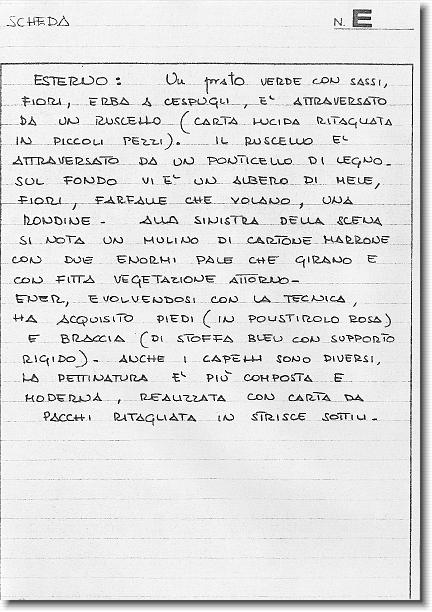 SCHEDA N. E
ESTERNO: UN PRATO VERDE CON SASSI,
FIORI, ERBA A CESPUGLI, E' ATTRAVERSATO
DA UN RUSCELLO (CARTA LUCIDA RITAGLIATA
IN PICCOLI PEZZI). IL RUSCELLO E'
ATTRAVERSATO DA UN PONTICELLO DI LEGNO-
SUL FONDO VI E' UN ALBERO DI MELE,
FIORI, FARFALLE CHE VOLANO, UNA
RONDINE- ALLA SINISTRA DELLA SCENA
SI NOTA UN MULINO DI CARTONE MARRONE
CON DUE ENORMI PALE CHE GIRANO E
CON FITTA VEGETAZIONE ATTORNO-
ENER, EVOLVENDOSI CON LA TECNICA,
HA ACQUISITO PIEDI (IN POLISTIROLO ROSA)
E BRACCIA (DI STOFFA BLEU CON SUPPORTO
RIGIDO)- ANCHE I CAPELLI SONO DIVERSI,
LA PETTINATURA E' PIÙ COMPOSTA E
MODERNA, REALIZZATA CON CARTA DA
PACCHI RITAGLIATA IN STRISCE SOTTILI-